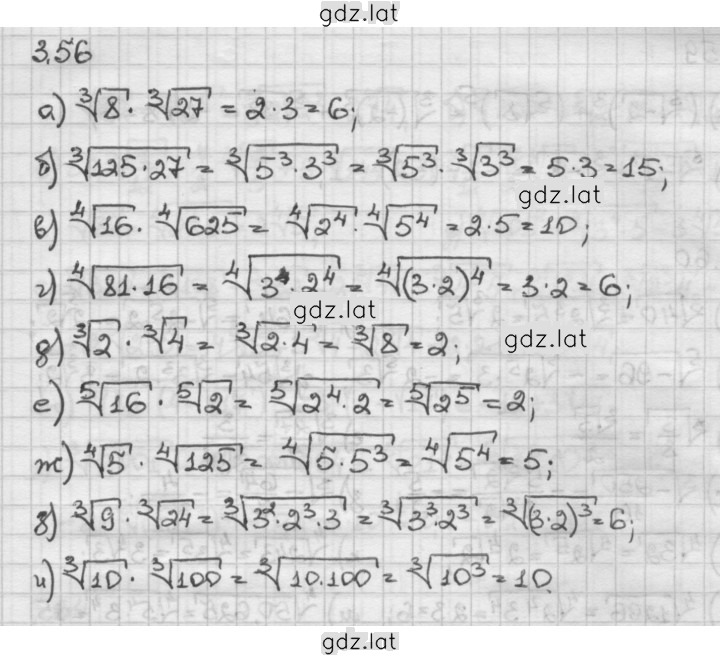 gdz.lat
3.56
а) ∛8 · ∛27 = 2 · 3 = 6;
б) ∛(125 · 27) = ∛(5³ · 3³) = ∛5³ · ∛3³ = 5 · 3 = 15;
gdz.lat
в) ∜16 · ∜625 = ∜2⁴ · ∜5⁴ = 2 · 5 = 10;
г) ∜(81 · 16) = ∜(3⁴ · 2⁴) = ∜((3 · 2)⁴) = 3 · 2 = 6;
gdz.lat
д) ∛2 · ∛4 = ∛(2 · 4) = ∛8 = 2;
gdz.lat
е) ⁵√16 · ⁵√2 = ⁵√(2⁴ · 2) = ⁵√2⁵ = 2;
ж) ∜5 · ∜125 = ∜(5 · 5³) = ∜5⁴ = 5;
з) ∛9 · ∛24 = ∛(3² · 2³ · 3) = ∛(3³ · 2³) = ∛((3 · 2)³) = 6;
и) ∛10 · ∛100 = ∛(10 · 100) = ∛10³ = 10.
gdz.lat